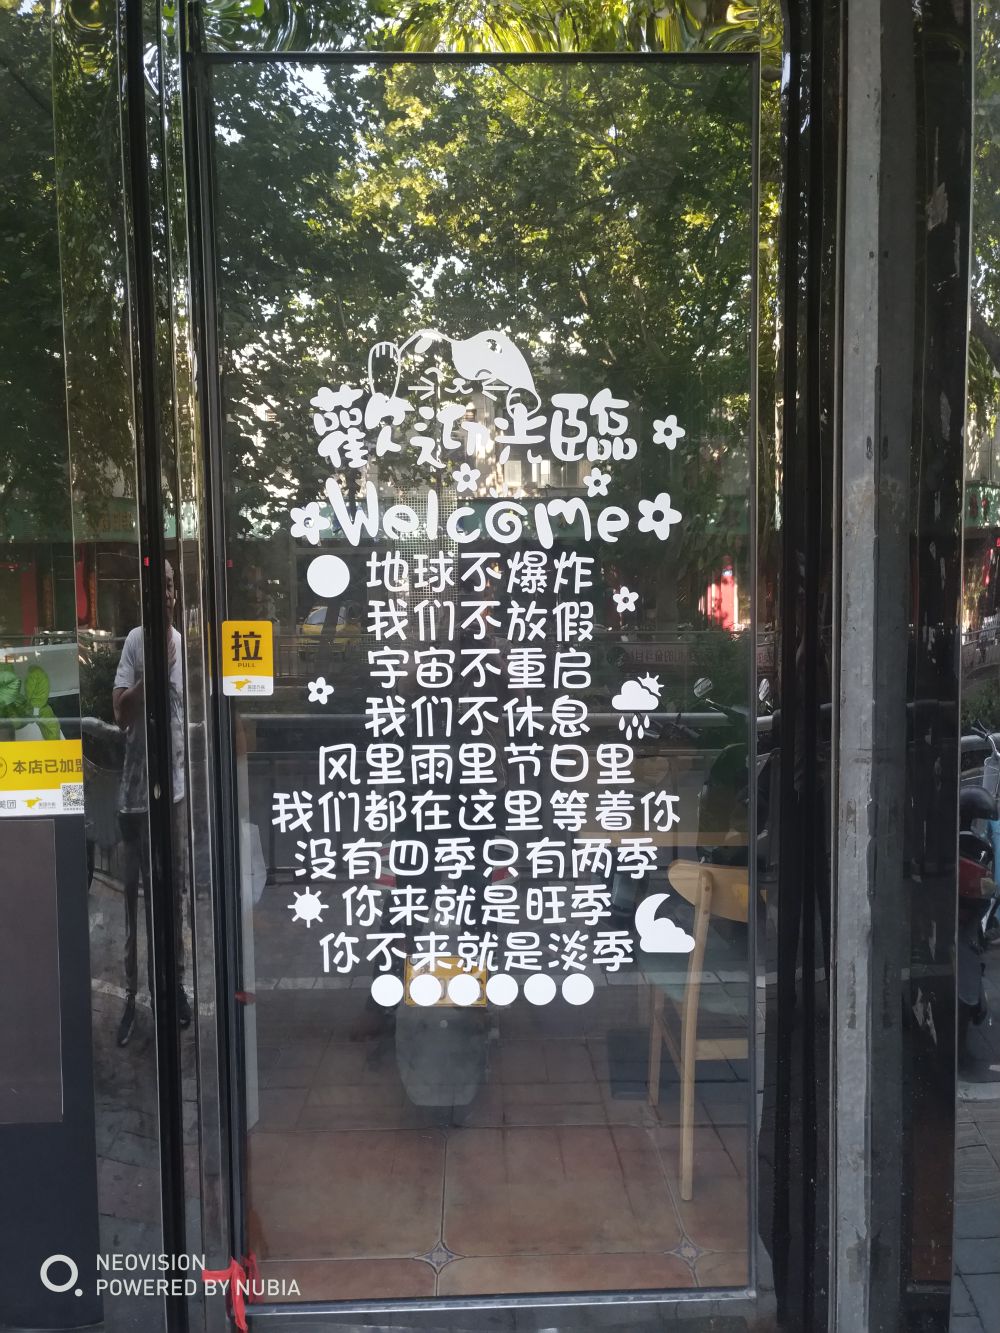 歡迎光臨
Welcome
地球不爆炸
我们不放假
宇宙不重启
我们不休息
风里雨里节日里
我们都在这里等着你
没有四季只有两季
你来就是旺季
你不来就是淡季
拉
PULL
美团外卖
本店已加盟
美团
美团外卖
NEOVISION
POWERED BY NUBIA